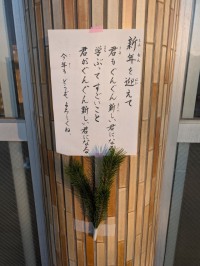 新年を迎えて
君もぐんぐん新しい君になる
学ぶってすごいこと
君がぐんぐん新しい君になる
今年も どうぞ よろしくね